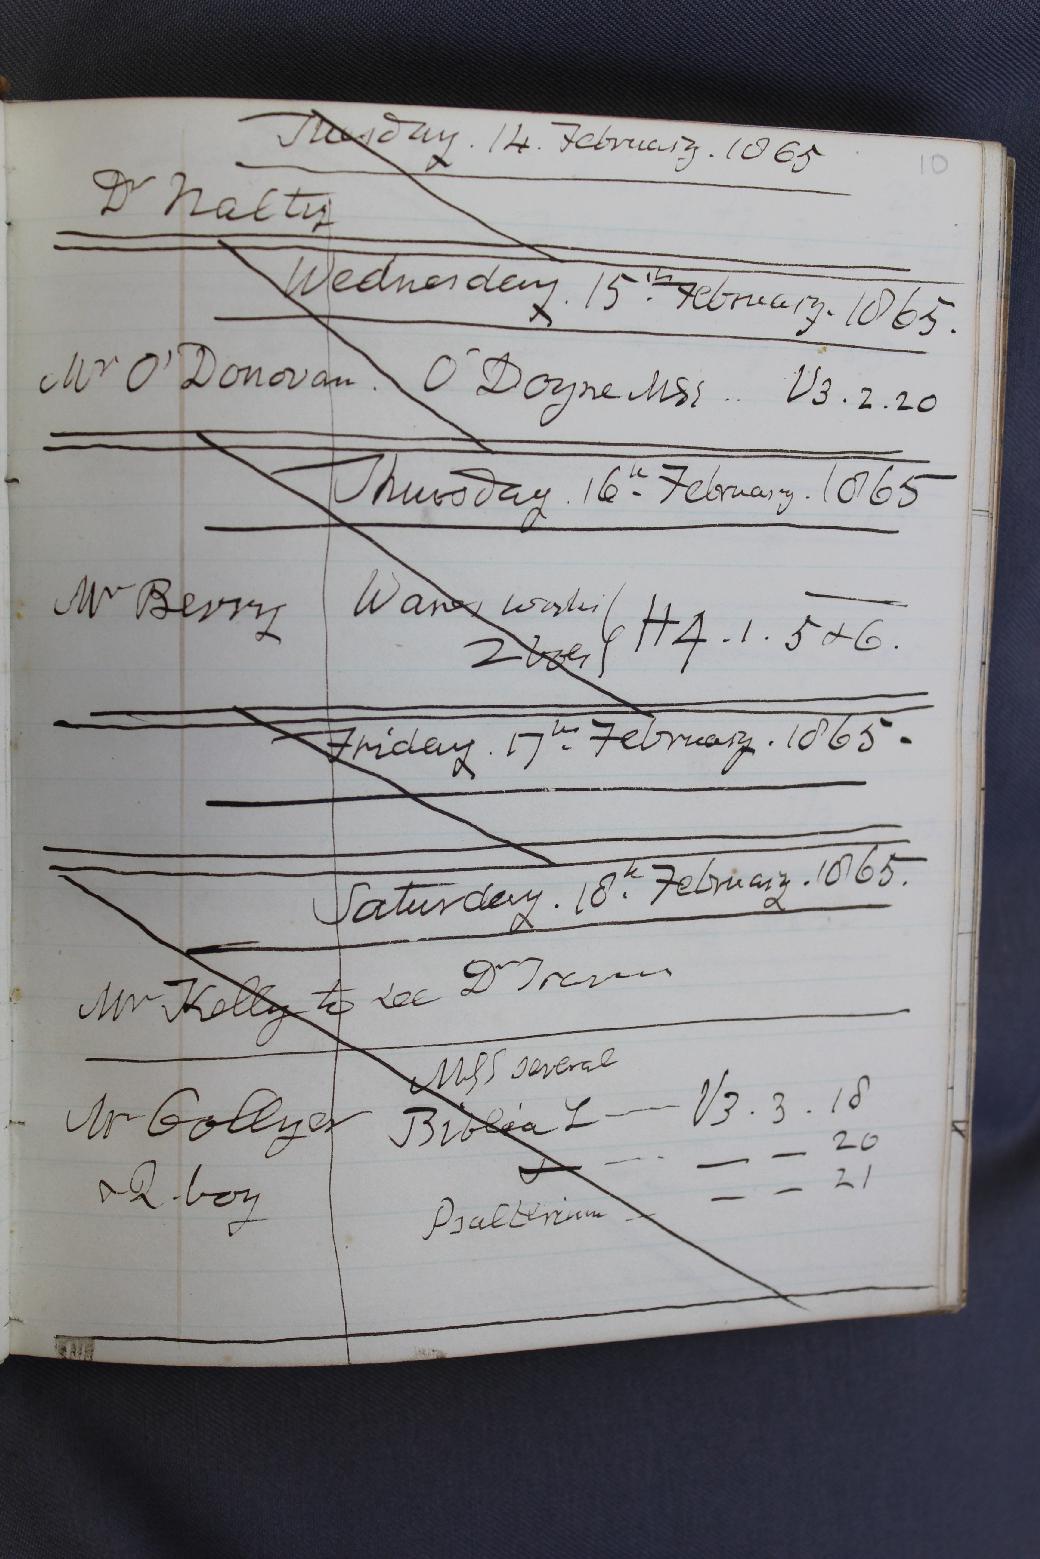 10
Tuesday. 14. February. 1865
Dr Nalty
Wednesday. 15th February. 1865.
Mr O'Donovan. O'Doyne MSS .. V3.2.20
Thursday. 16th February. 1865
Mr Berry Wares works
2 vols H4.1.5 & 6.
Friday. 17th February. 1865.
Saturday. 18th February. 1865.
Mr Kelly to see Dr
MSS several
Mr Collyer Biblia L — V3.3.18
— — 20
& Q. boy — — 21
Psalterium —